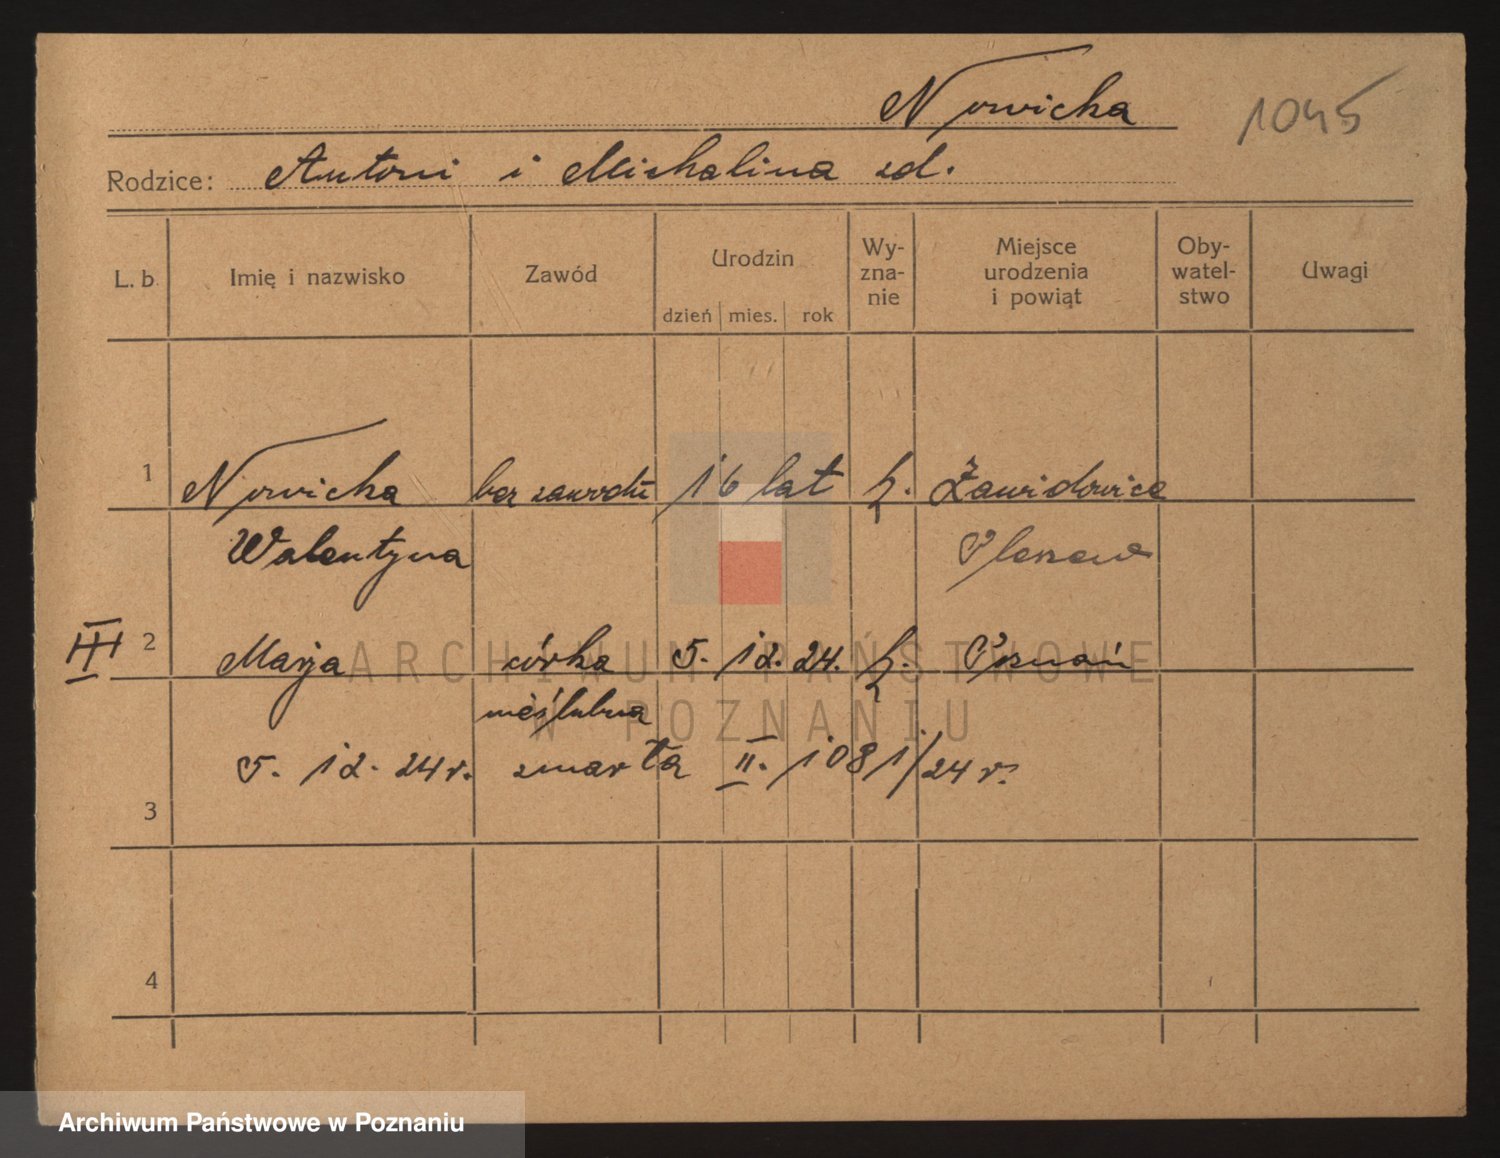 Nowicka 1045
Rodzice: Antoni i Michalina zd.
L. b. Imię i nazwisko Zawód Urodzin Wy-zna-nie Miejsce urodzenia i powiąt Oby-watel-stwo Uwagi
dzień mies. rok
1 Nowicka bez zawodu 16 lat k. Żawidowice
Walentyna Pleszew
III 2 Marja córka 5. 12. 24. k. Poznań
nieślubna
5. 12. 24 r. zmarła II. 1081/24 r.
3
4
ARCHIWUM PAŃSTWOWE
W POZNANIU
Archiwum Państwowe w Poznaniu